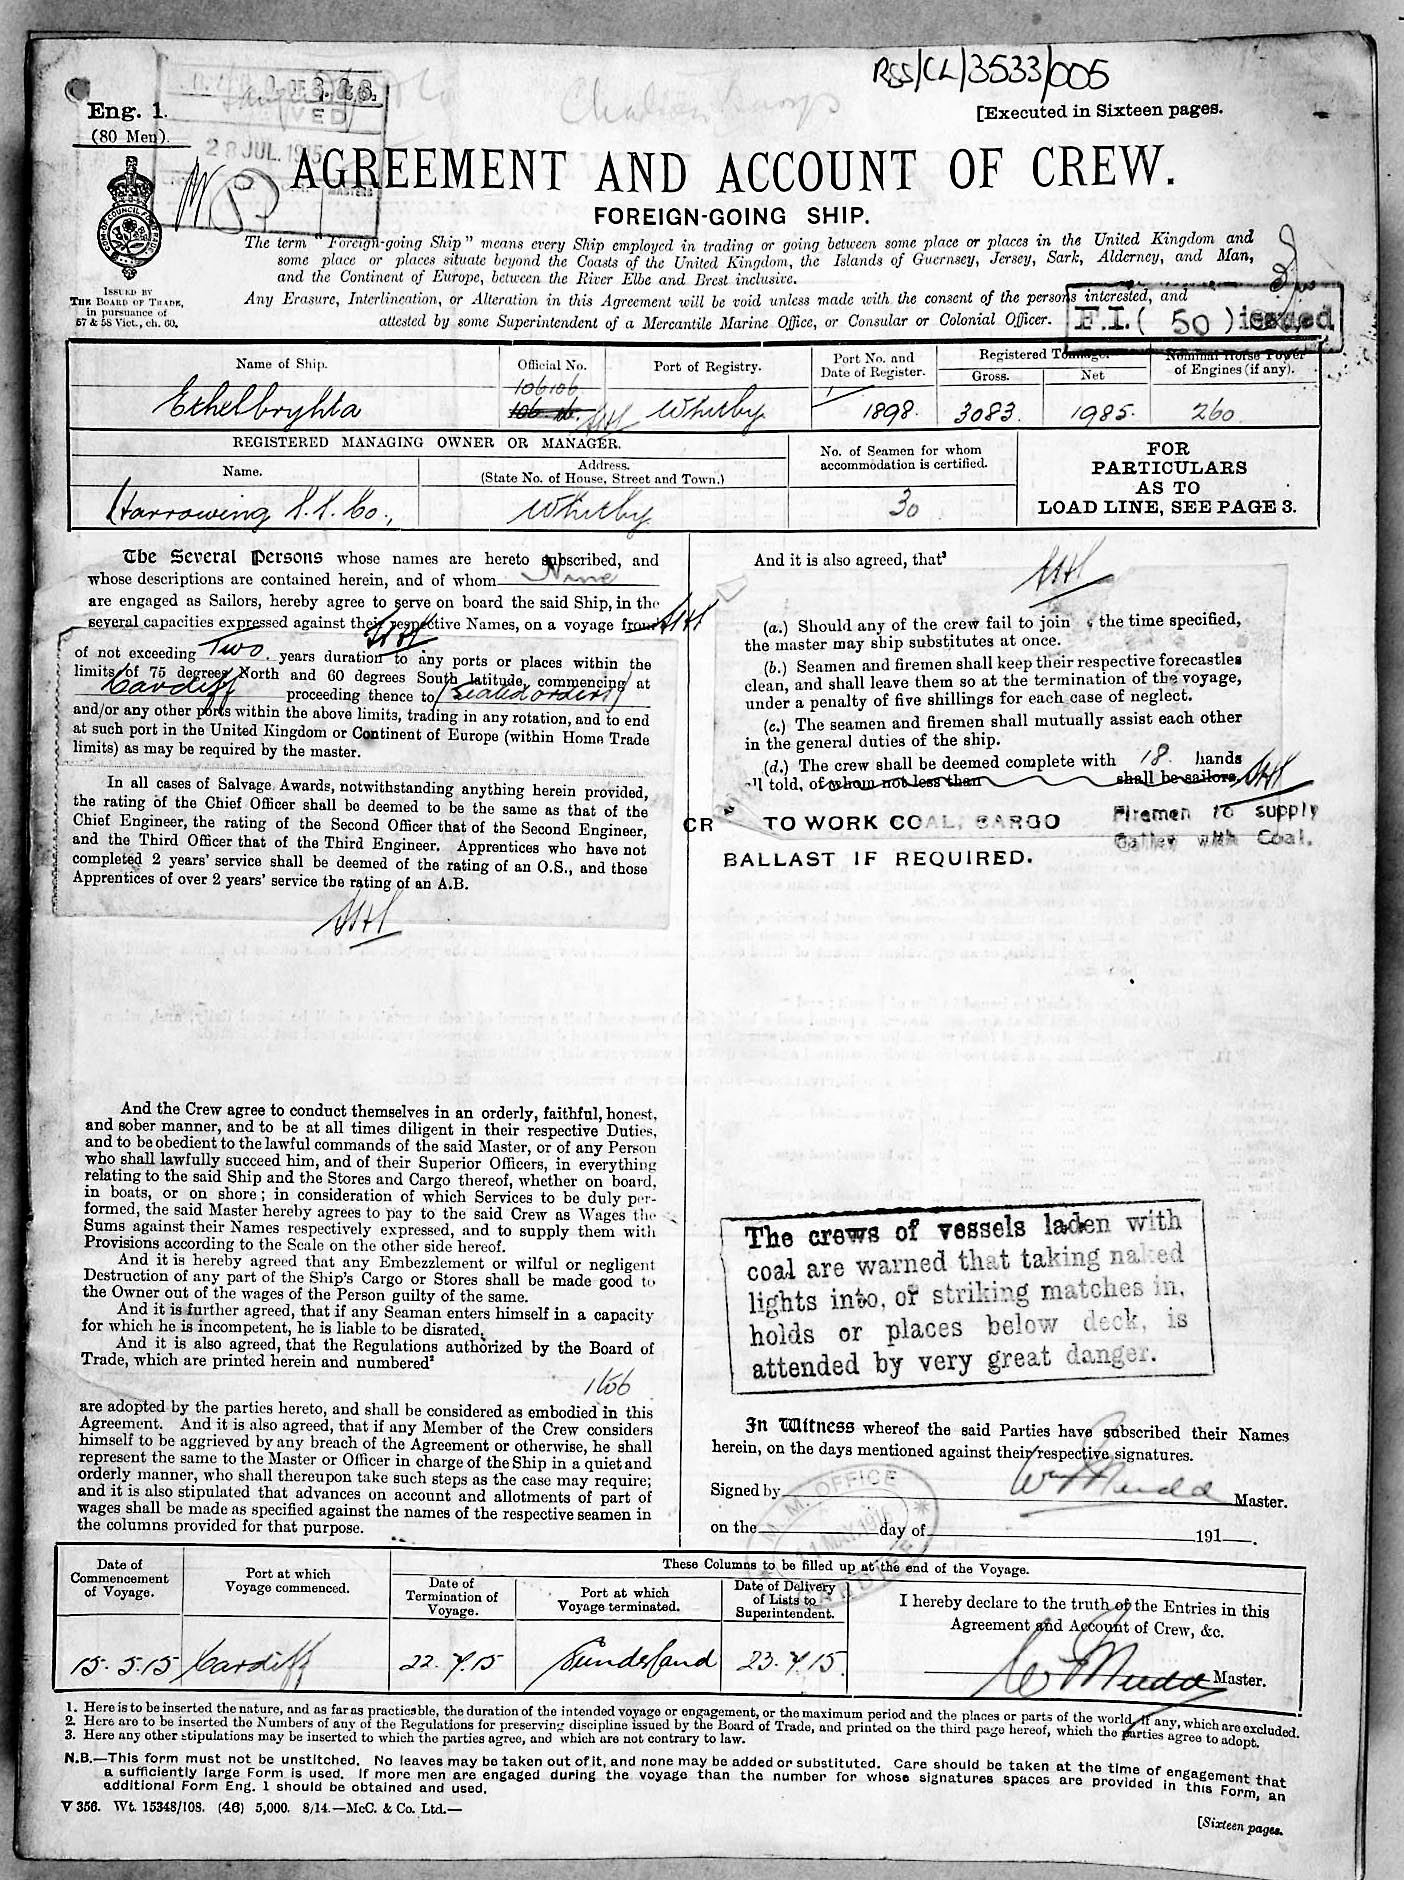 RSS/CL/3533/005
Eng. 1.
(80 Men).
[Executed in Sixteen pages.
28 JUL. 1915
AGREEMENT AND ACCOUNT OF CREW.
FOREIGN-GOING SHIP.
ISSUED BY
THE BOARD OF TRADE,
in pursuance of
57 & 58 Vict., ch. 60.
The term "Foreign-going Ship" means every Ship employed in trading or going between some place or places in the United Kingdom and
some place or places situate beyond the Coasts of the United Kingdom, the Islands of Guernsey, Jersey, Sark, Alderney, and Man,
and the Continent of Europe, between the River Elbe and Brest inclusive.
Any Erasure, Interlineation, or Alteration in this Agreement will be void unless made with the consent of the persons interested, and
attested by some Superintendent of a Mercantile Marine Office, or Consular or Colonial Officer.
F.I. ( 50 ) issued
Name of Ship. Official No. Port of Registry. Port No. and Date of Register. Registered Tonnage. Gross. Net Nominal Horse Power of Engines (if any).
Ethelbryhta 106106 Whitby 1/1898. 3083. 1985. 260.
REGISTERED MANAGING OWNER OR MANAGER.
Name. Address. (State No. of House, Street and Town.) No. of Seamen for whom accommodation is certified.
Harrowing S.S. Co., Whitby 30
FOR
PARTICULARS
AS TO
LOAD LINE, SEE PAGE 3.
The Several Persons whose names are hereto subscribed, and
whose descriptions are contained herein, and of whom Nine
are engaged as Sailors, hereby agree to serve on board the said Ship, in the
several capacities expressed against their respective Names, on a voyage from
of not exceeding Two years duration to any ports or places within the
limits of 75 degrees North and 60 degrees South latitude, commencing at
Cardiff proceeding thence to (Sealed orders)
and/or any other ports within the above limits, trading in any rotation, and to end
at such port in the United Kingdom or Continent of Europe (within Home Trade
limits) as may be required by the master.
In all cases of Salvage Awards, notwithstanding anything herein provided,
the rating of the Chief Officer shall be deemed to be the same as that of the
Chief Engineer, the rating of the Second Officer that of the Second Engineer,
and the Third Officer that of the Third Engineer. Apprentices who have not
completed 2 years' service shall be deemed of the rating of an O.S., and those
Apprentices of over 2 years' service the rating of an A.B.
And the Crew agree to conduct themselves in an orderly, faithful, honest,
and sober manner, and to be at all times diligent in their respective Duties,
and to be obedient to the lawful commands of the said Master, or of any Person
who shall lawfully succeed him, and of their Superior Officers, in everything
relating to the said Ship and the Stores and Cargo thereof, whether on board,
in boats, or on shore; in consideration of which Services to be duly per-
formed, the said Master hereby agrees to pay to the said Crew as Wages the
Sums against their Names respectively expressed, and to supply them with
Provisions according to the Scale on the other side hereof.
And it is hereby agreed that any Embezzlement or wilful or negligent
Destruction of any part of the Ship's Cargo or Stores shall be made good to
the Owner out of the wages of the Person guilty of the same.
And it is further agreed, that if any Seaman enters himself in a capacity
for which he is incompetent, he is liable to be disrated.
And it is also agreed, that the Regulations authorized by the Board of
Trade, which are printed herein and numbered²
1 to 6
are adopted by the parties hereto, and shall be considered as embodied in this
Agreement. And it is also agreed, that if any Member of the Crew considers
himself to be aggrieved by any breach of the Agreement or otherwise, he shall
represent the same to the Master or Officer in charge of the Ship in a quiet and
orderly manner, who shall thereupon take such steps as the case may require;
and it is also stipulated that advances on account and allotments of part of
wages shall be made as specified against the names of the respective seamen in
the columns provided for that purpose.
And it is also agreed, that³
(a.) Should any of the crew fail to join the time specified,
the master may ship substitutes at once.
(b.) Seamen and firemen shall keep their respective forecastles
clean, and shall leave them so at the termination of the voyage,
under a penalty of five shillings for each case of neglect.
(c.) The seamen and firemen shall mutually assist each other
in the general duties of the ship.
(d.) The crew shall be deemed complete with 18 hands
all told, of whom not less than shall be sailors.
CR TO WORK COAL, CARGO
BALLAST IF REQUIRED.
Firemen to supply
Galley with Coal.
The crews of vessels laden with
coal are warned that taking naked
lights into, or striking matches in,
holds or places below deck, is
attended by very great danger.
In Witness whereof the said Parties have subscribed their Names
herein, on the days mentioned against their respective signatures.
Signed by W Mudd Master.
on the day of 191 .
M. M. OFFICE
CARDIFF
Date of Commencement of Voyage. Port at which Voyage commenced. These Columns to be filled up at the end of the Voyage.
Date of Termination of Voyage. Port at which Voyage terminated. Date of Delivery of Lists to Superintendent.
I hereby declare to the truth of the Entries in this
Agreement and Account of Crew, &c.
15.5.15 Cardiff 22.7.15 Sunderland 23.7.15. W Mudd Master.
1. Here is to be inserted the nature, and as far as practicable, the duration of the intended voyage or engagement, or the maximum period and the places or parts of the world, if any, which are excluded.
2. Here are to be inserted the Numbers of any of the Regulations for preserving discipline issued by the Board of Trade, and printed on the third page hereof, which the parties agree to adopt.
3. Here any other stipulations may be inserted to which the parties agree, and which are not contrary to law.
N.B.—This form must not be unstitched. No leaves may be taken out of it, and none may be added or substituted. Care should be taken at the time of engagement that
a sufficiently large Form is used. If more men are engaged during the voyage than the number for whose signatures spaces are provided in this Form, an
additional Form Eng. 1 should be obtained and used.
V 356. Wt. 15348/108. (46) 5,000. 8/14.—McC. & Co. Ltd.—
[Sixteen pages.